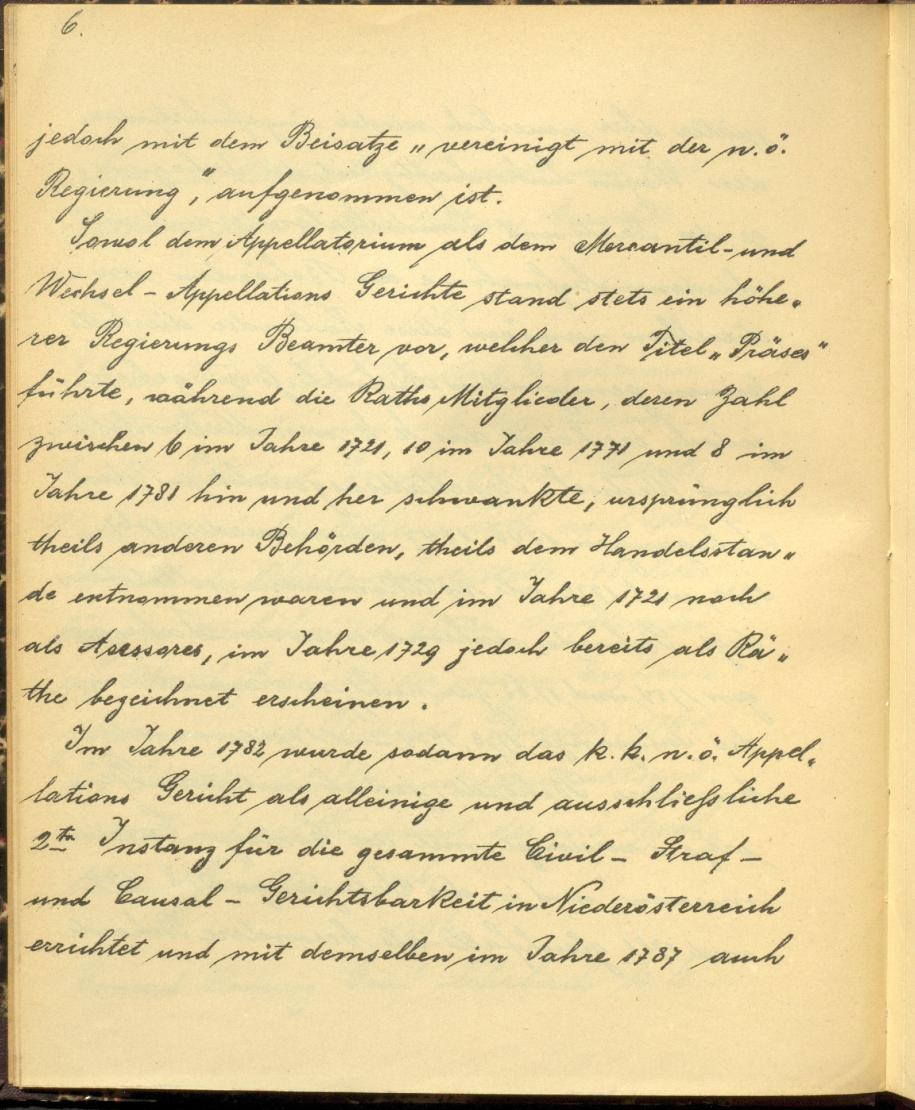 6.
jedoch mit dem Beisatze „vereinigt mit der n. ö.
Regierung," aufgenommen ist.
Sowol dem Appellatorium als dem Mercantil- und
Wechsel-Appellations Gerichte stand stets ein höhe„
rer Regierungs Beamter vor, welcher den Titel „Präses"
führte, während die Raths Mitglieder, deren Zahl
zwischen 6 im Jahre 1721, 10 im Jahre 1771 und 8 im
Jahre 1781 hin und her schwankte, ursprünglich
theils anderen Behörden, theils dem Handelsstan„
de entnommen waren und im Jahre 1721 noch
als Asessores, im Jahre 1729 jedoch bereits als Rä„
the bezeichnet erscheinen.
Im Jahre 1782 wurde sodann das k. k. n. ö. Appel„
lations Gericht als alleinige und ausschließliche
2te Instanz für die gesammte Civil- Straf-
und Causal-Gerichtsbarkeit in Niederösterreich
errichtet und mit demselben im Jahre 1787 auch